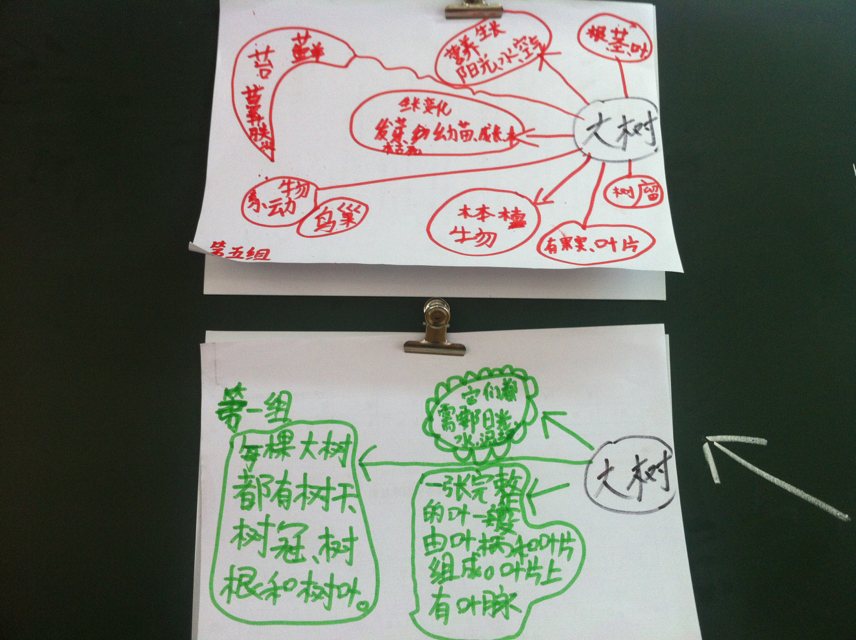 苔
蘚
营养 生长
阳光、水、空气
根、茎、叶
生长变化
发芽
幼苗、成长
大树
生物
动
鸟巢
木本植
生物
有果实、叶片
树瘤
第五组
第一组
它们都
需要阳光
水
大树
每棵大树
都有树干、
树冠、树
根和树叶。
一张完整
的叶一般
由叶柄和叶片
组成。叶片上
有叶脉